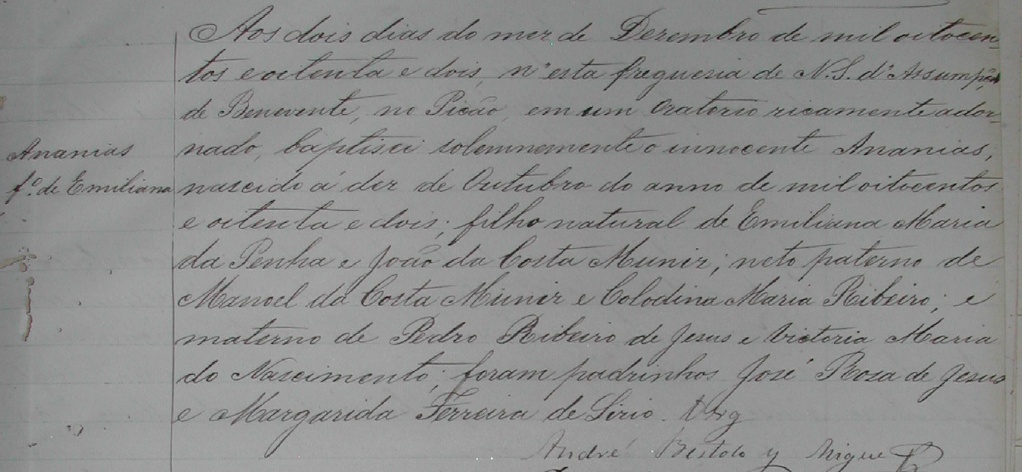 Aos dois dias do mez de Dezembro de mil oitocen-
tos e oitenta e dois, n'esta freguezia de N. S. d'Assumpção
de Benevente, no Picão, em um Oratorio ricamente ador-
nado, baptisei solemnemente o innocente Ananias,
Ananias
f.º de Emiliana
nascido á dez de Outubro do anno de mil oitocentos
e oitenta e dois; filho natural de Emiliana Maria
da Penha e João da Costa Muniz; neto paterno de
Manoel da Costa Muniz e Colodina Maria Ribeiro; e
materno de Pedro Ribeiro de Jesus e Victoria Maria
do Nascimento; foram padrinhos José Roza de Jesus
e Margarida Ferreira de Sirio.
André